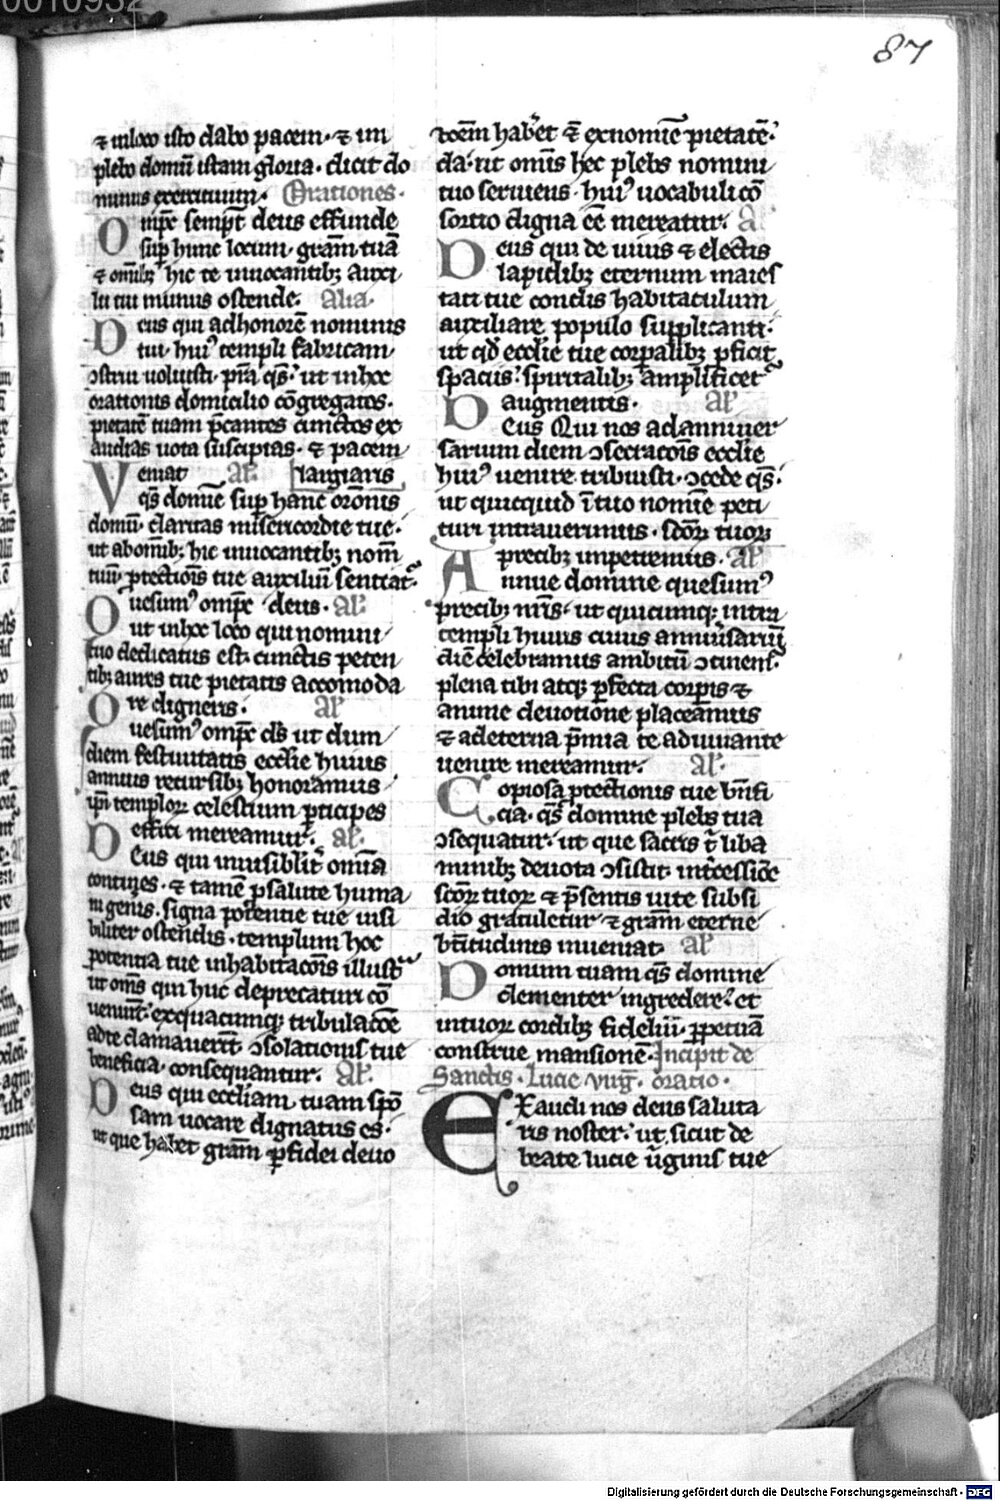 87
⁊ inloco isto dabo pacem. ⁊ im
plebo domū istam gloria. dicit do
minus exercituum. Orationes.
Omp̄e semp̄t deus effunde
sup̄ hunc locum. gr̄am tuā
⁊ omīb; hic te inuocantib; auxi
lii tui munus ostende. Alia.
Deus qui adhonorē nominis
tui. hui᷒ templi fabricam
ꝯstrui uoluisti. p̄ra q̄s. ut inhoc
orationis domicilio cōgregatos.
pietatē tuam p̄cantes cunctos ex
audias uota suscipias. ⁊ pacem
largiaris
Veniat al̄.
q̄s domīe sup̄ hanc or̄onis
domū. claritas misericordie tue.
ut abomīb; hic inuocantib; nom̄
tuū. ꝓtectiōis tue auxiliū sentiat᷒.
Quesum᷒ omp̄e deus. al̄.
ut inhoc loco qui nomini
tuo dedicatus est. cunctis peten
tib; aures tue pietatis accomoda
re digneris. al̄
Quesum᷒ omp̄e ds̄ ut dum
diem festiuitatis ecclīe huius
annuis recursib; honoramus
ip̄i templor̄ celestium ꝑticipes
effici mereamur. al̄.
Deus qui inuisibilit̄ omīa
contines. ⁊ tamē ꝑsalute huma
ni genis. signa potentie tue uisi
biliter ostendis. templum hoc
potentia tue inhabitacōis illust᷒
ut om̄s qui huc deprecaturi cō
ueniūt. exquacumq; tribulacōe
adte clamauerīt. ꝯsolationis tue
beneficia. consequantur. al̄.
Deus qui eccliam tuam spō
sam uocare dignatus es.
ut que habet gr̄am ꝑfidei deuo
tōem hab̄et ⁊ exnomīe pietatē.
da. ut omīs hec plebs nomini
tuo seruiens. hui᷒ uocabuli cō
sortio digna eē mereatur. al̄
Deus qui de uiuis ⁊ electis
lapidib; eternum maies
tati tue condis habitaculum
auxiliare populo supplicanti.
ut qd̄ ecclīe tue corꝑalib; ꝓficit
spaciis. spiritalib; amplificet᷒
augmentis. al̄
Deus Qui nos adanniuer
sarium diem ꝯsecratōis ecclīe
hui᷒ uenire tribuisti. ꝯcede q̄s.
ut quicquid ī tuo nomīe peti
turi intrauerimus. sc̄or̄ tuor̄
precib; impetremus. al̄
Annue domine quesum᷒
precib; nr̄is. ut quicumq; intra
templi huius cuius anniūsariū
diē celebramus ambitū ꝯtinent᷒.
plena tibi atq; ꝑfecta corꝑis ⁊
anime deuotione placeamus
⁊ adeterna p̄mia te adiuuante
uenire mereamur. al̄.
Copiosa ꝓtectionis tue bn̄fi
cia. q̄s domine plebs tua
ꝯsequatur. ut que sacris t̄ liba
minib; deuota ꝯsistit. int̄cessiōe
sc̄or̄ tuor̄ ⁊ p̄sentis uite subsi
dio gratuletur. ⁊ gr̄am eterne
bt̄itudinis inueniat. al̄
Domum tuam q̄s domine
clementer ingredere. et
intuor̄ cordib; fideliū. ꝑpetuā
construe mansionē. Incipit de
Sanctis. Lucie uirg̅. oratio.
EXaudi nos deus saluta
ris noster. ut sicut de
beate lucie ūginis tue
Digitalisierung gefördert durch die Deutsche Forschungsgemeinschaft - DFG